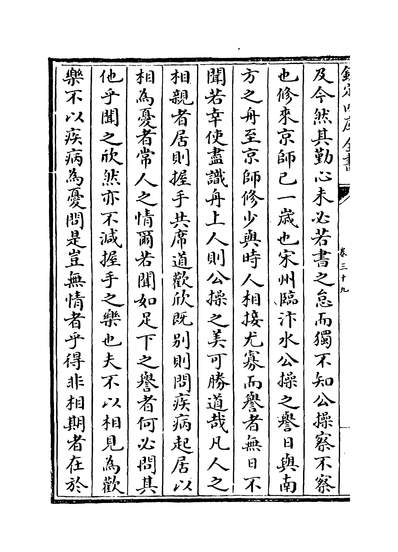 欽定四庫全書
卷三十九
及今然其勤心未必若書之怠而獨不知公操察不察
也修來京師已一歲也宋州臨汴水公操之譽日與南
方之舟至京師修少與時人相接尤寡而譽者無日不
聞若幸使盡識舟上人則公操之美可勝道哉凡人之
相親者居則握手共席道歡欣既别則問疾病起居以
相為憂者常人之情爾若聞如足下之譽者何必問其
他乎聞之欣然亦不減握手之樂也夫不以相見為歡
樂不以疾病為憂問是豈無情者乎得非相期者在於